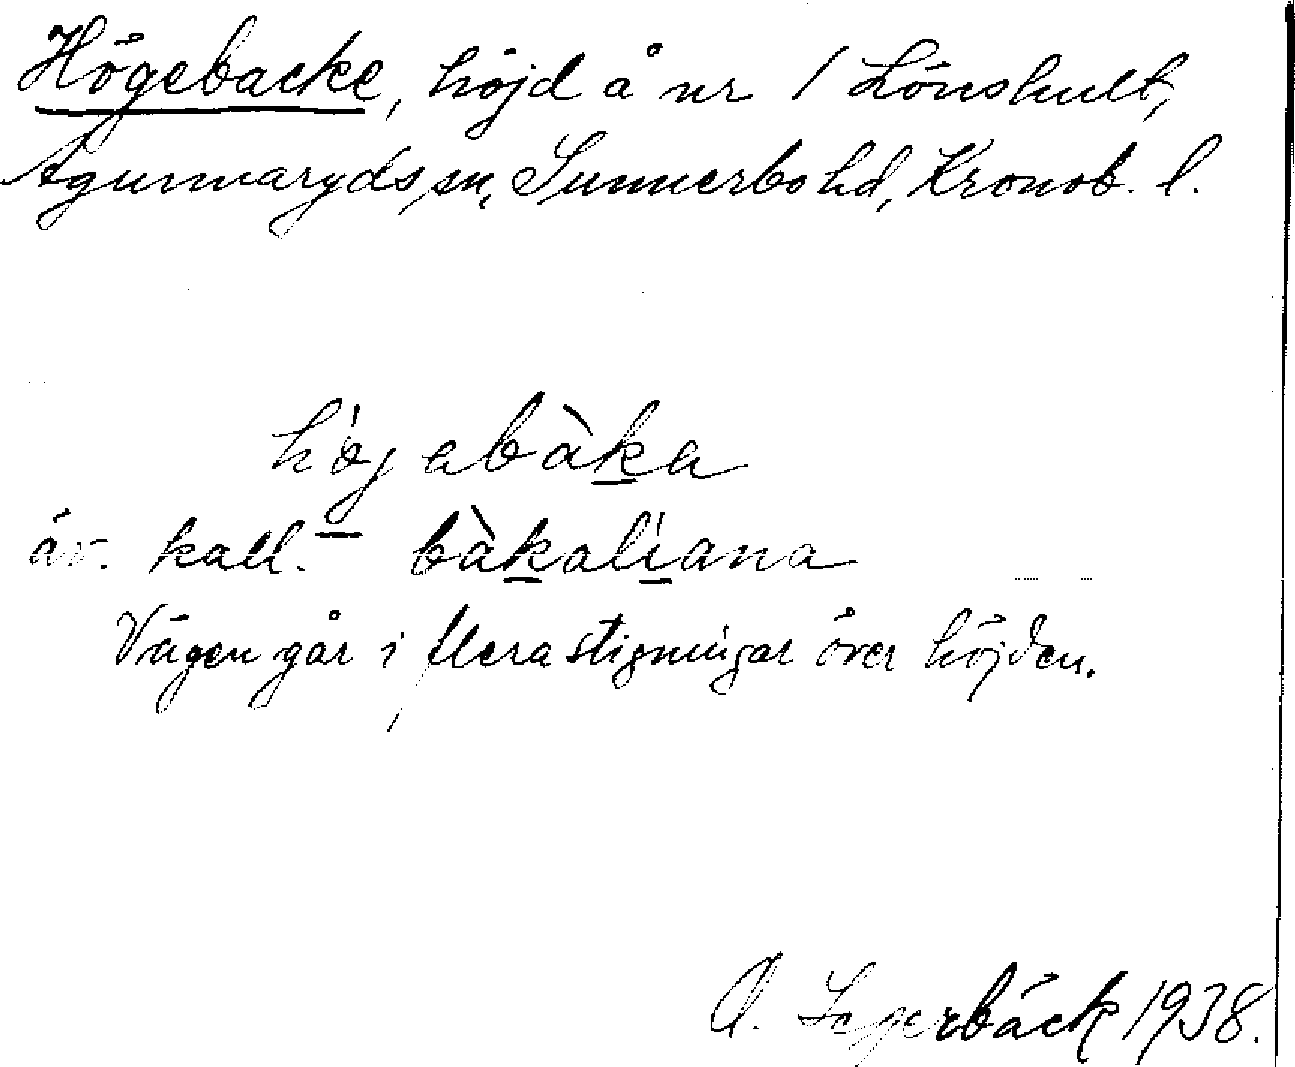 Högebacke, höjd å nr 1 Lönshult,
Agunnaryds sn, Sunnerbo hd, Kronob. l.
högabàka
äv. kall. bàkalìana
Vägen går i flera stigningar över höjden.
O. Segerbäck 1938.